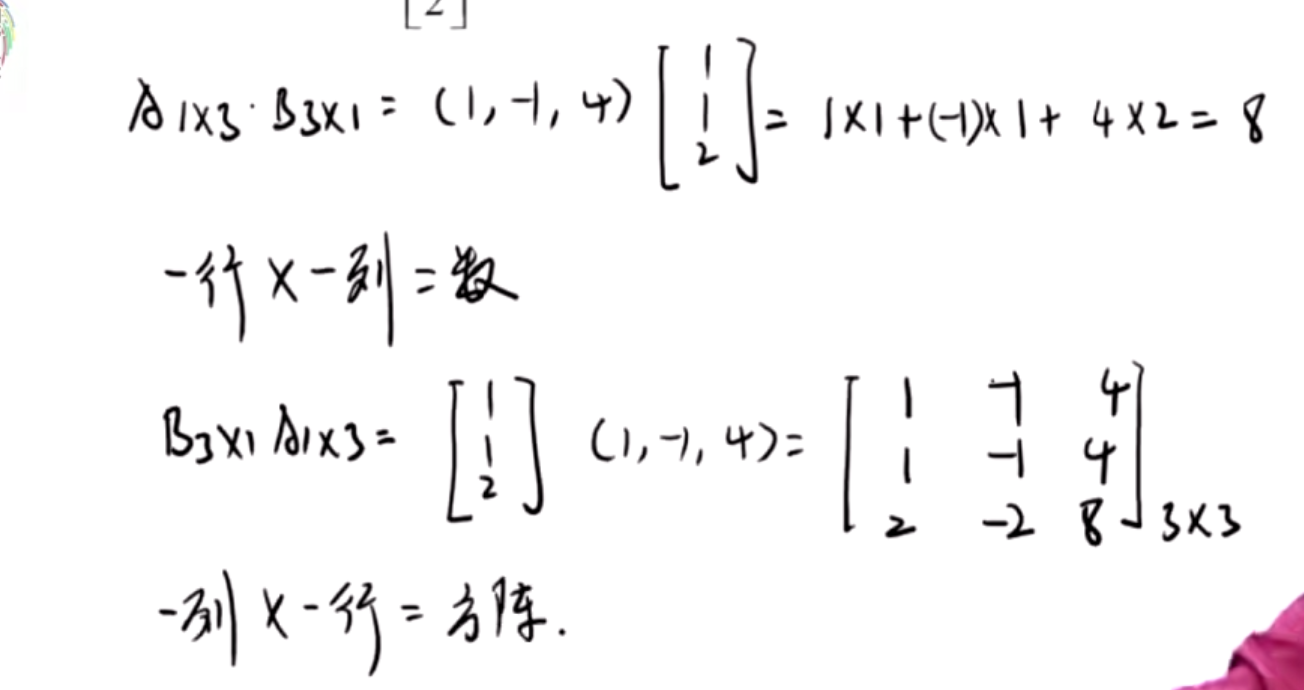 [2]
A1×3·B3×1 = (1, -1, 4) [1 1 2] = 1×1+(-1)×1+ 4×2 = 8
一行×一列=数
B3×1 A1×3 = [1 1 2] (1, -1, 4) = [1 -1 4
1 -1 4
2 -2 8]3×3
一列×一行=方阵.